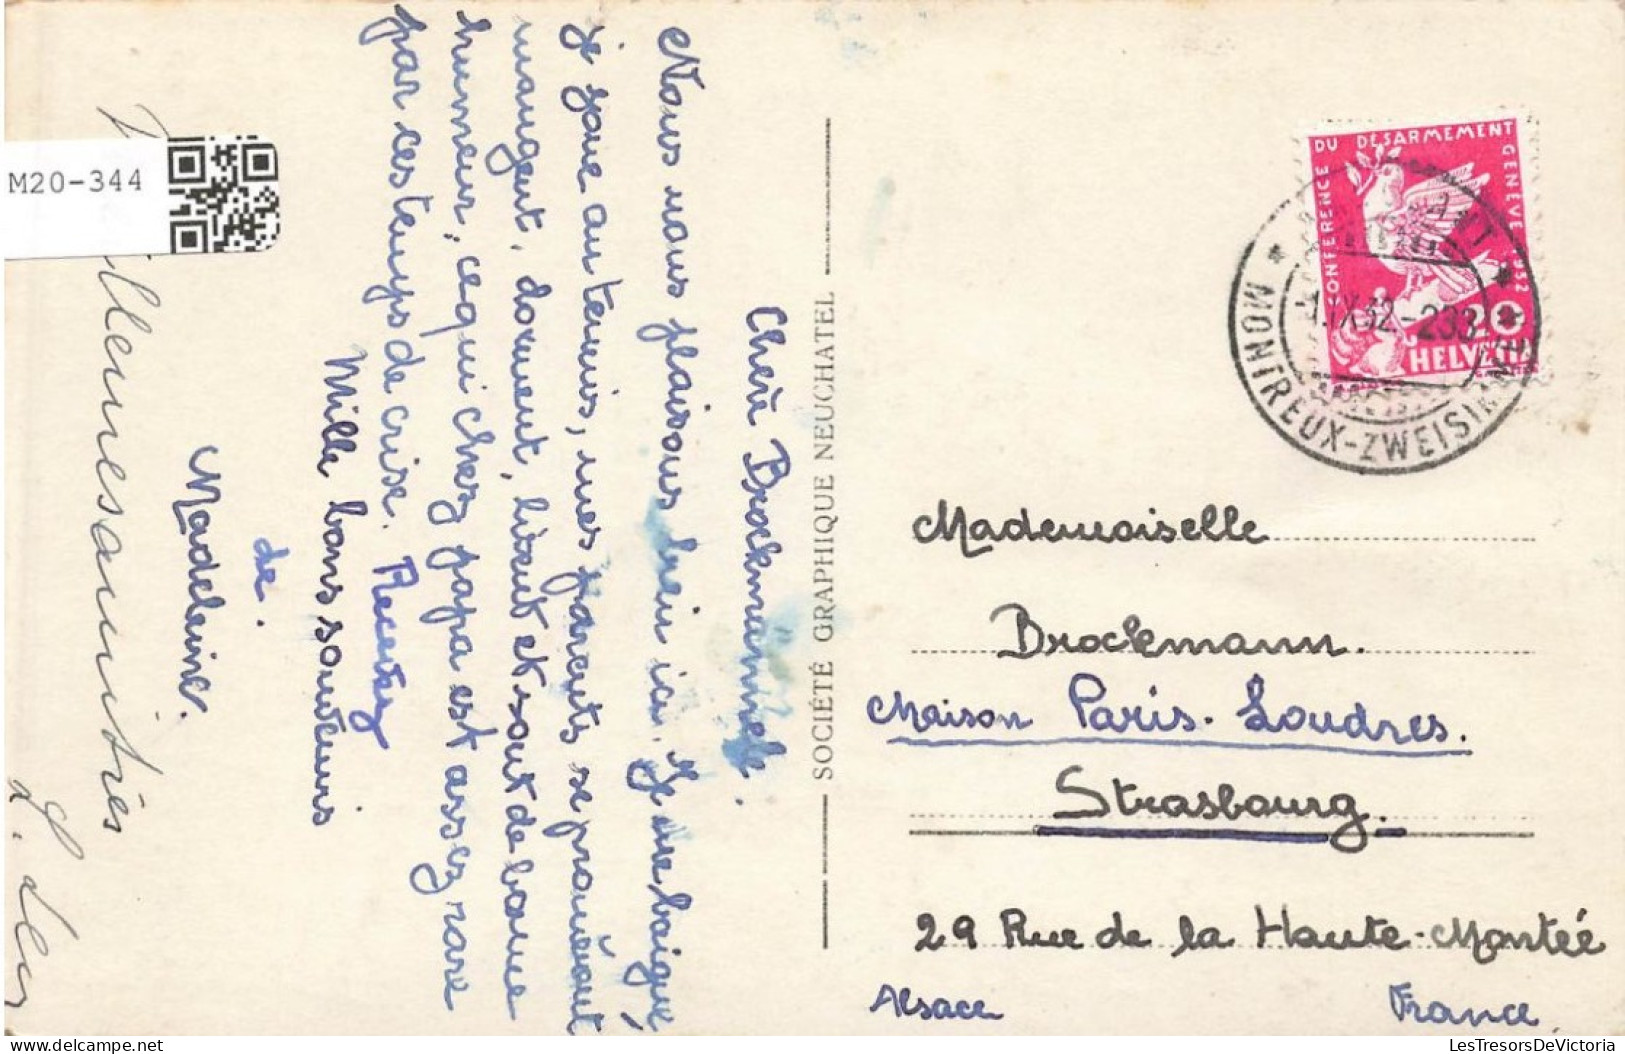 M20-344
Chère Brockmannele.
Nous nous plaisons bien ici. Je me baigne,
je joue au tennis, mes parents se promènent
mangent, dorment, lisent et sont de bonne
humeur, ce qui chez papa est assez rare
par ces temps de crise. Recevez
Mille bons souvenirs
de.
Madeleine.
SOCIÉTÉ GRAPHIQUE NEUCHATEL
CONFERENCE DU DÉSARMEMENT GENÈVE 1932
20
HELVETIA
MONTREUX-ZWEISIMMEN
Mademoiselle
Brockmann.
Maison Paris-Londres.
Strasbourg.
29 Rue de la Haute-Montée
Alsace France.
LesTresorsDeVictoria
delcampe.net